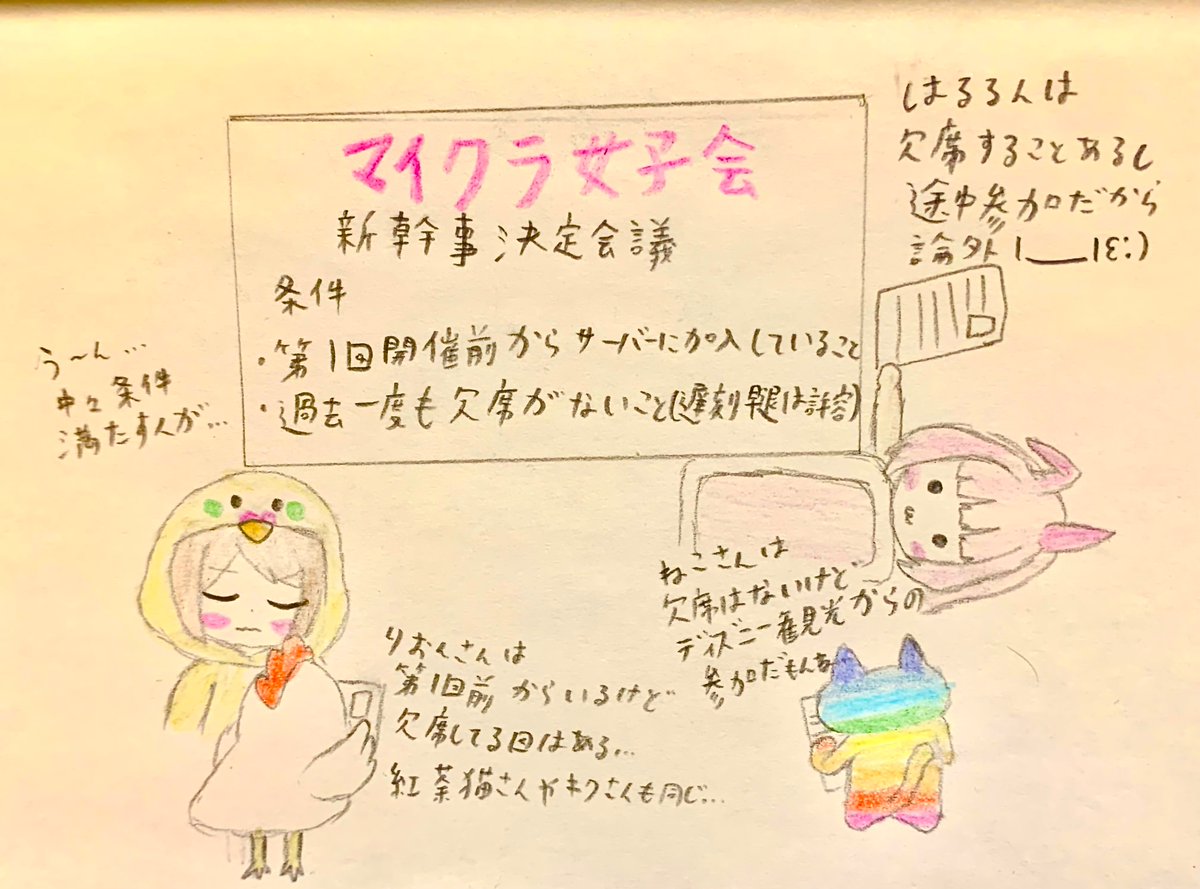 マイクラ女子会
新幹事決定会議
条件
・第1回開催前からサーバーに加入していること
・過去一度も欠席がないこと(遅刻早退は許容)
はるるんは
欠席することあるし
途中参加だから
論外 |___|ε:)
う〜ん…
中々条件
満たす人が…
ねこさんは
欠席はないけど
ディズニー観光からの
参加だもんなぁ
りおんさんは
第1回前からいるけど
欠席してる回はある…
紅茶猫さんやネクさんも同じ…